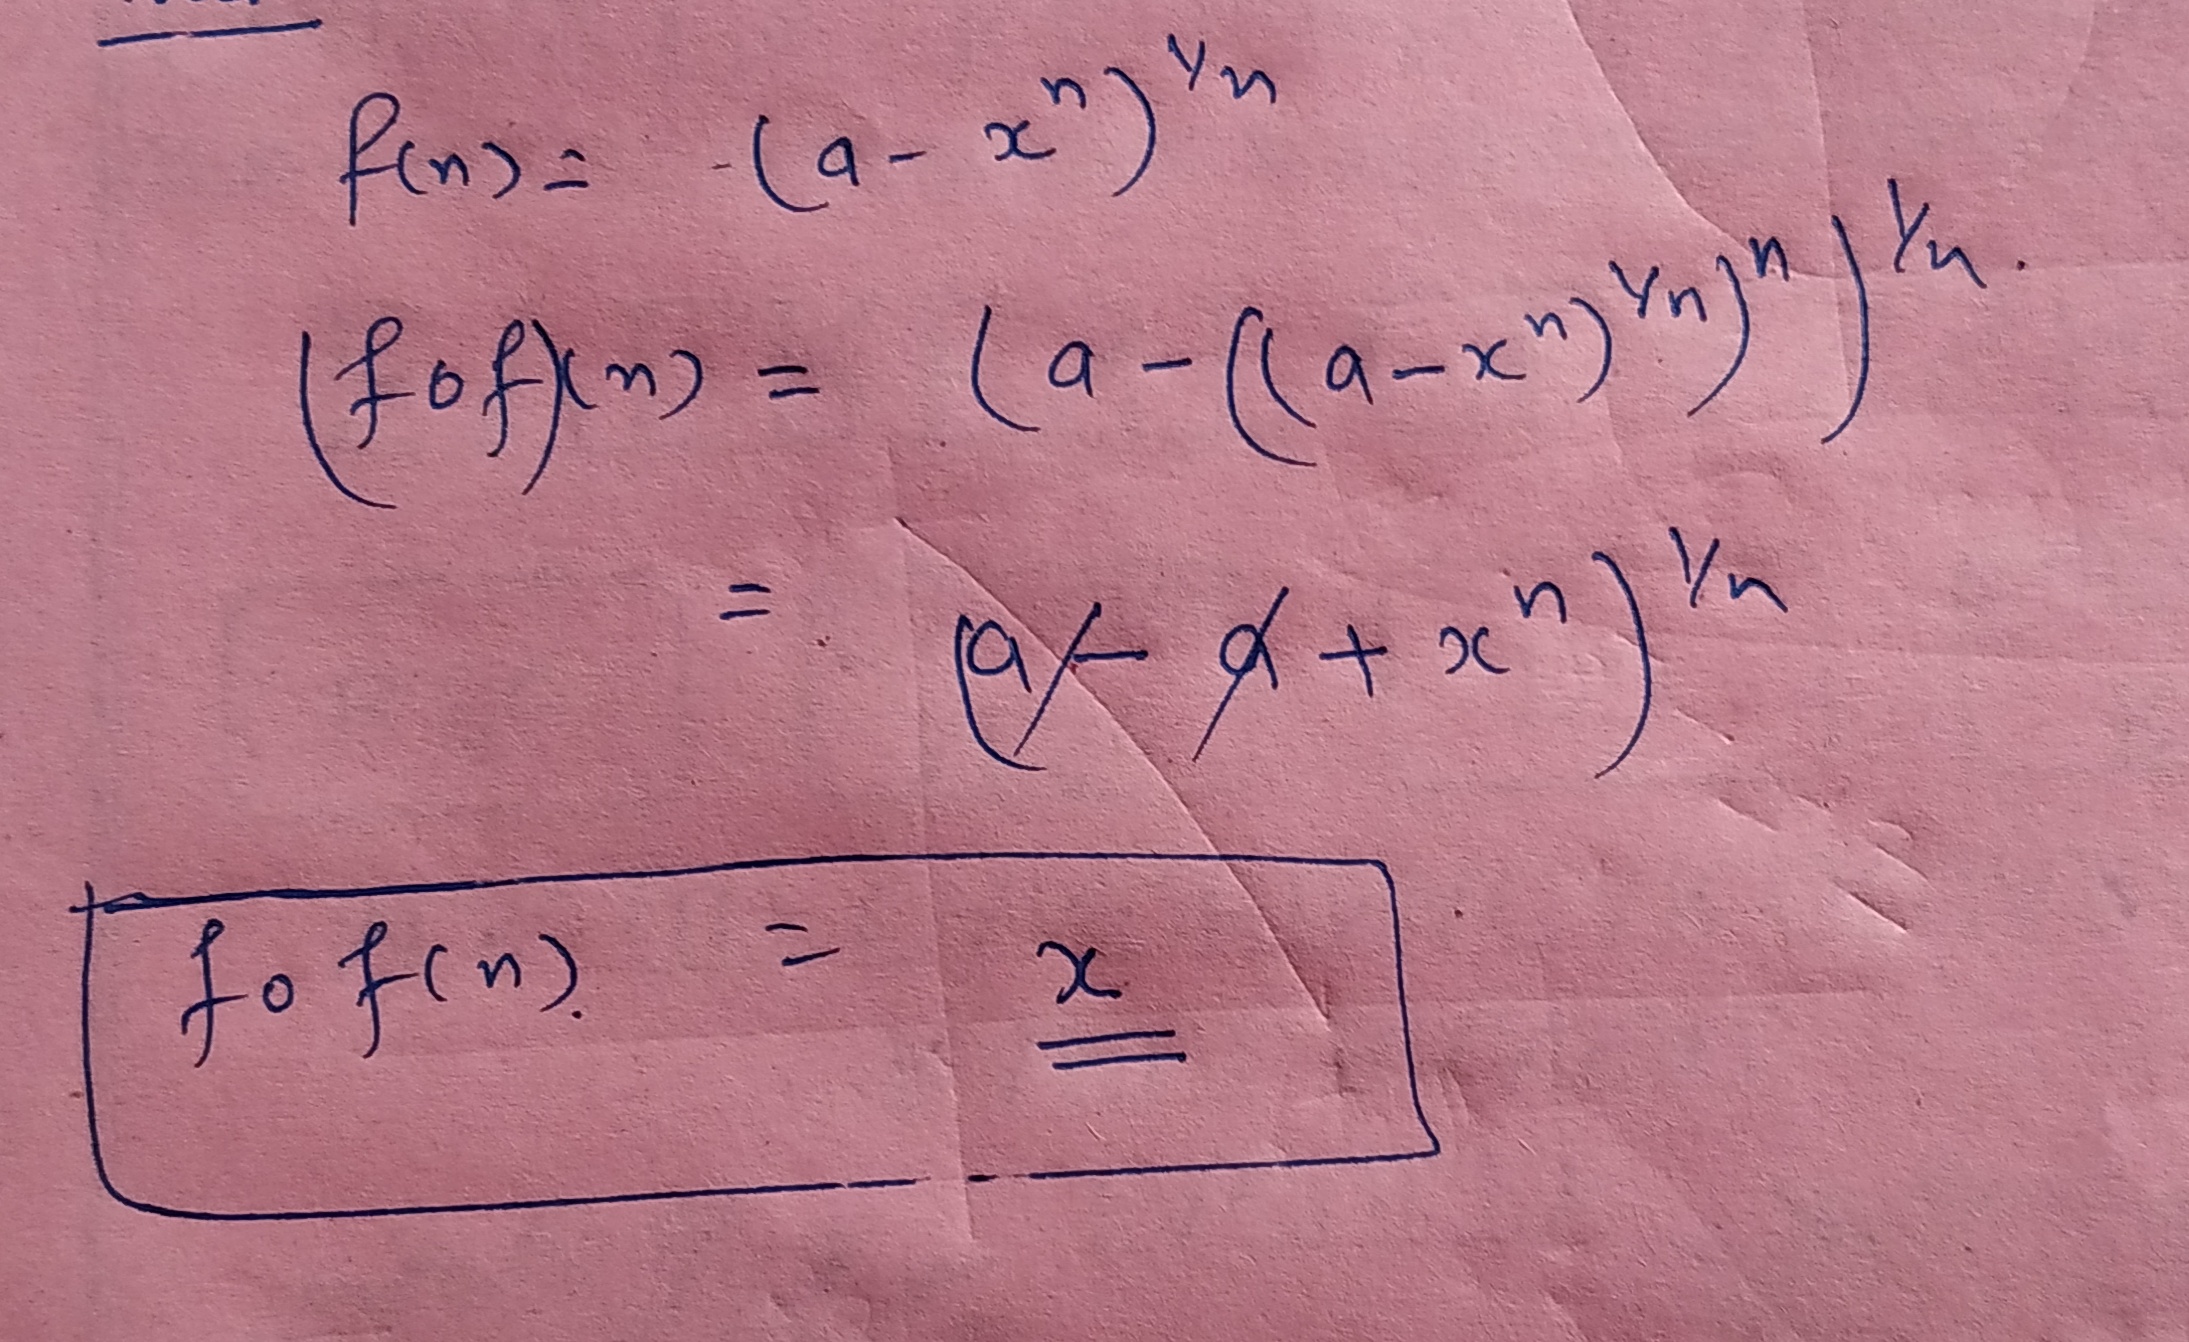 f(n) = (a - x^n)^1/n
(f o f)(n) = (a - ((a - x^n)^1/n)^n)^1/n.
= (a - a + x^n)^1/n
f o f(n). = x